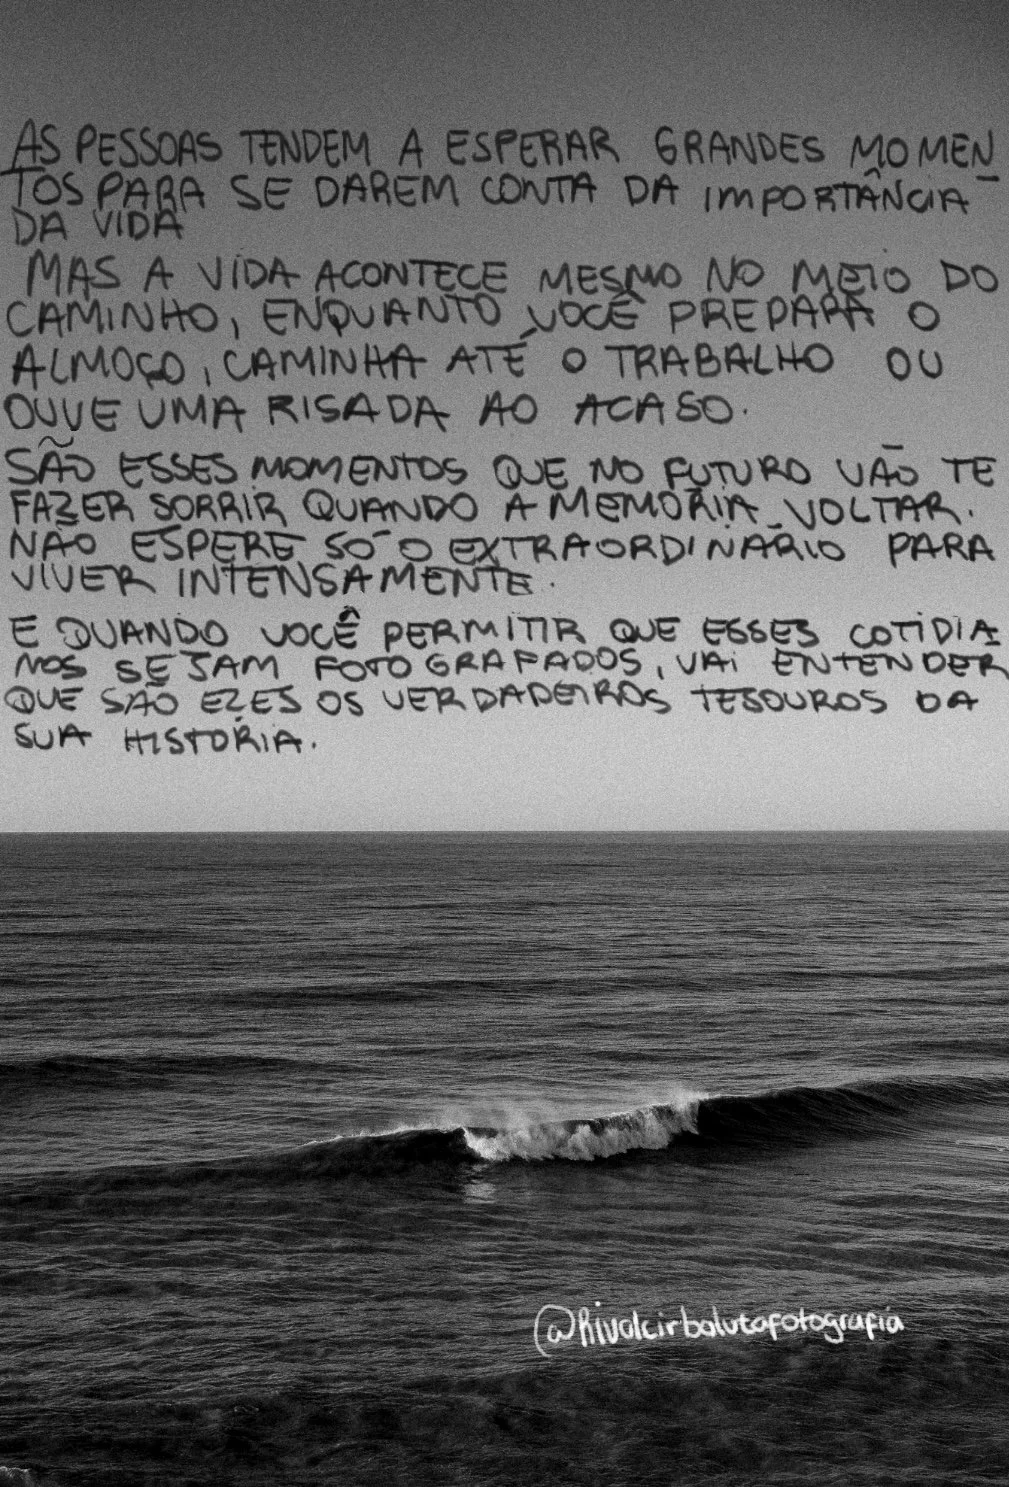 AS PESSOAS TENDEM A ESPERAR GRANDES MOMEN-
TOS PARA SE DAREM CONTA DA IMPORTÂNCIA
DA VIDA
MAS A VIDA ACONTECE MESMO NO MEIO DO
CAMINHO, ENQUANTO VOCÊ PREPARA O
ALMOÇO, CAMINHA ATÉ O TRABALHO OU
OUVE UMA RISADA AO ACASO.
SÃO ESSES MOMENTOS QUE NO FUTURO VÃO TE
FAZER SORRIR QUANDO A MEMÓRIA VOLTAR.
NÃO ESPERE SÓ O EXTRAORDINÁRIO PARA
VIVER INTENSAMENTE.
E QUANDO VOCÊ PERMITIR QUE ESSES COTIDIA
NOS SEJAM FOTOGRAFADOS, VAI ENTENDER
QUE SÃO ELES OS VERDADEIROS TESOUROS DA
SUA HISTÓRIA.
@Rivalcirbalutafotografia